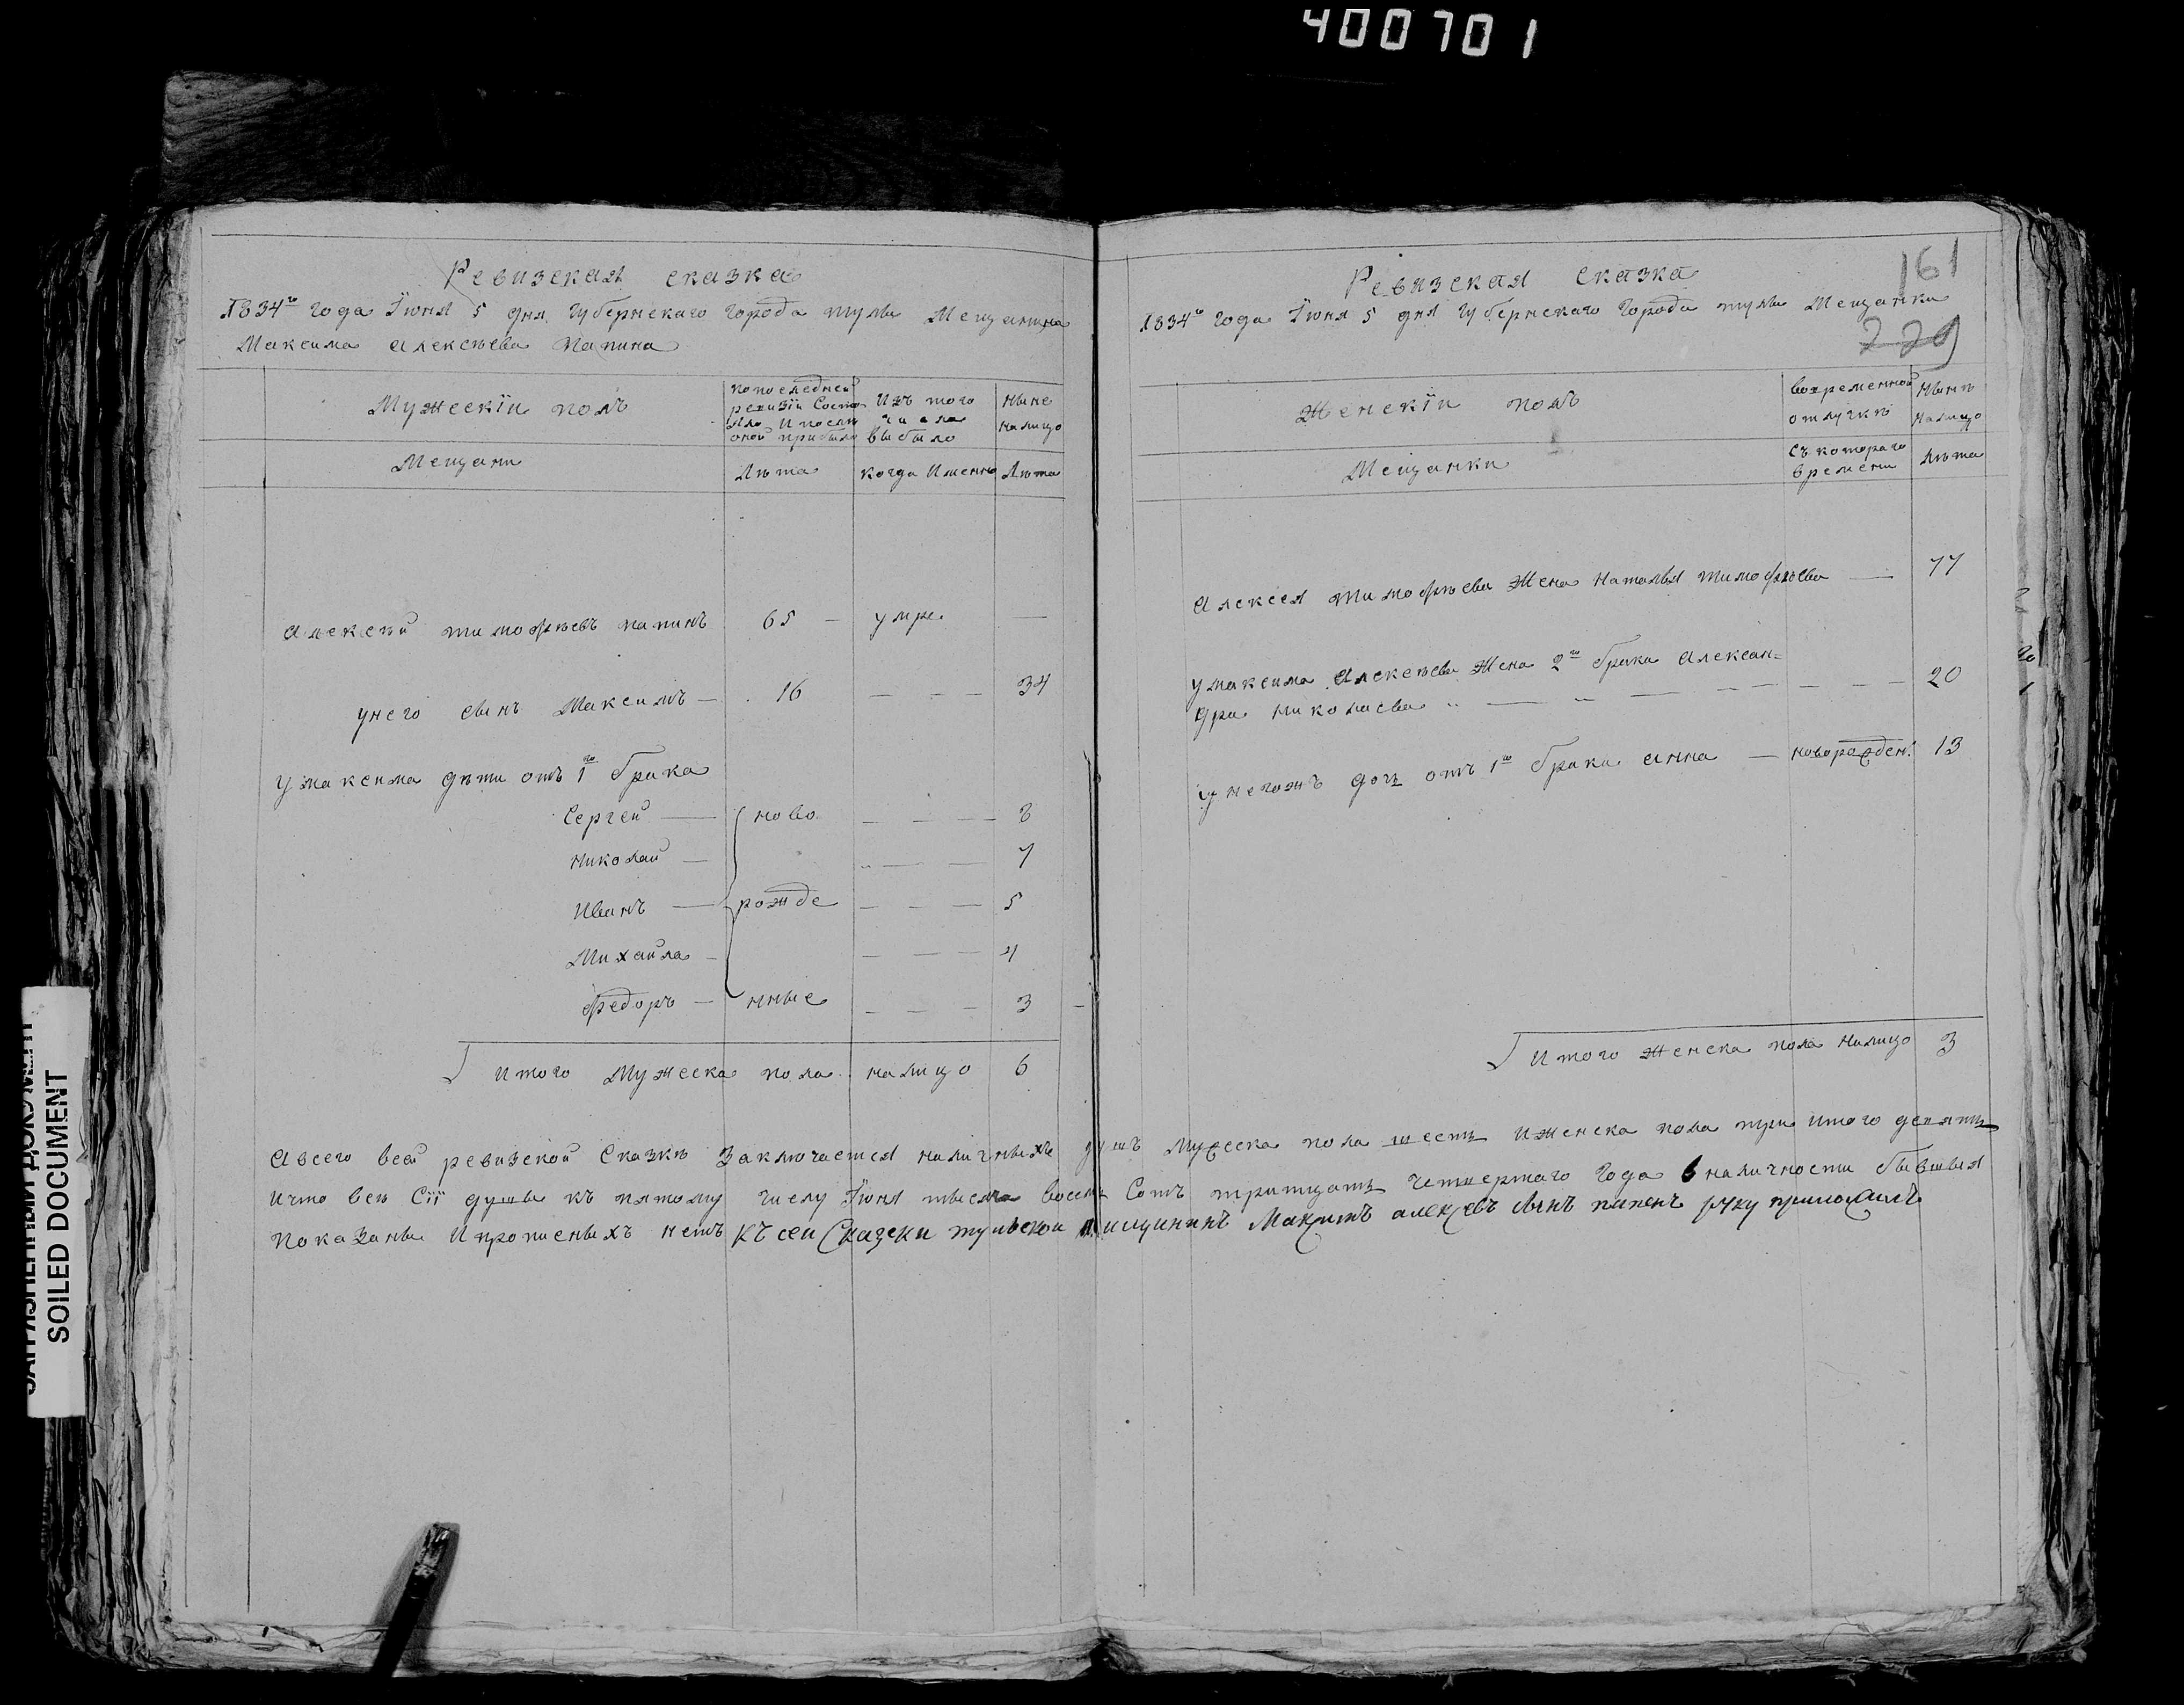 400701
Ревизская сказка
1834го года Iюня 5 дня губернскаго города тулы Мещанина
Максима Алексѣева Папина
Мужескiй полъ
по последней ревизiи состояло и после оной прибыло
Изъ того числа выбыло
Ныне налицо
Мещани
Лѣта
когда Именно
Лѣта
Алексѣй тимофѣевъ папинъ 65 — умре. —
унего сынъ Максимъ — 16 — — — 34
у максима дѣти отъ 1го брака
Сергей — ново — — — 8
Николай — — — 7
Иванъ — рожде — — — 5
Михайла — — — — 4
Федоръ — нные — — — 3
Итого Мужеска пола налицо 6
161
Ревизская Сказка
1834го года Iюня 5 дня губернскаго города тулы Мещанки
229
Женскiй полъ
вовременной отлучкѣ
Нынѣ налицо
Мещанки
съ котораго времени
Лѣта
Алексея тимофѣева Жена Наталья тимофѣева — 77
у максима Алексѣева Жена 2го брака Алексан=
дра николаева — — — — 20
у негожъ дочь отъ 1го брака анна — новорожден: 13
Итого женска пола налицо 3
Авсего всей ревизской Сказкѣ Заключается наличныхъ душъ Мужеска пола шесть Иженска пола три итого девять
Ичто всѣ Сiи душы къ пятому числу Iюня тысеча восемь Сотъ тритцать Четвертаго Года в наличности бывшыя
показаны Ипрописныхъ нетъ къ сеи Сказски тульской мищининъ Максимъ алексевъ сынъ папенъ руку приложилъ
ЗАГРЯЗНЕННЫЙ ДОКУМЕНТ
SOILED DOCUMENT